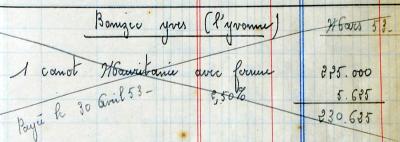 Bourzec yves (l'yvonne) Mars 53_
1 canot Mauritanie avec ferrure 225.000
2,50% 5.625
Payé le 30 Avril 53_ 230.625